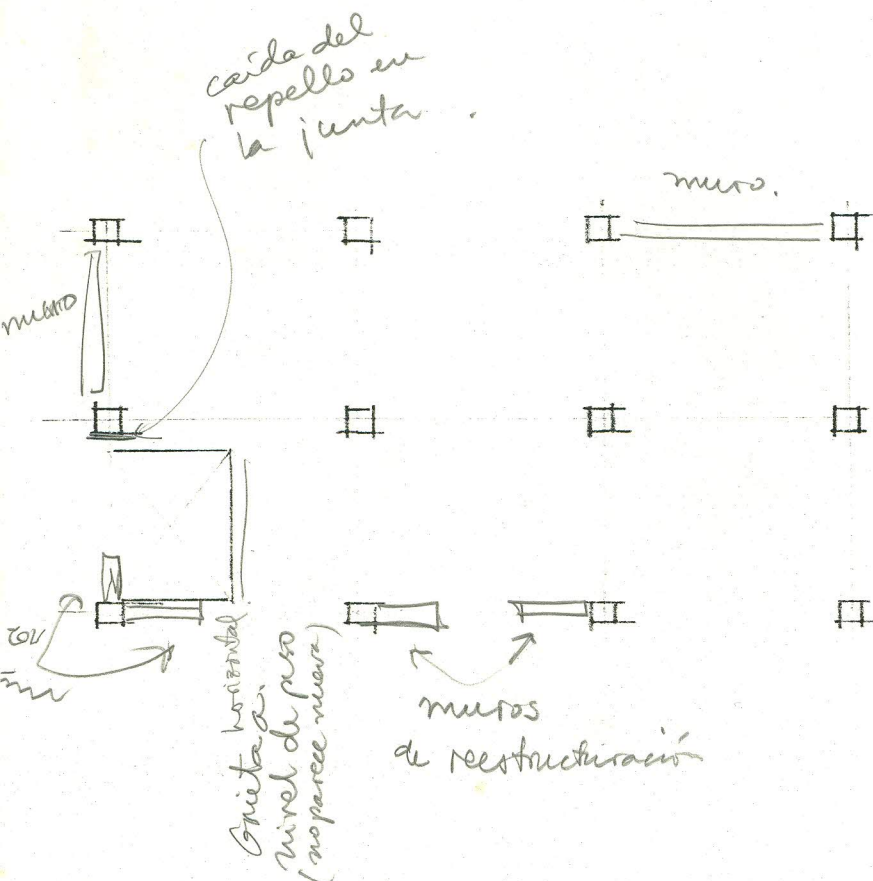 caída del
repello en
la junta.
muro.
muro
Grieta horizontal
a
nivel de piso
(no parece nueva)
muros
de reestructuración